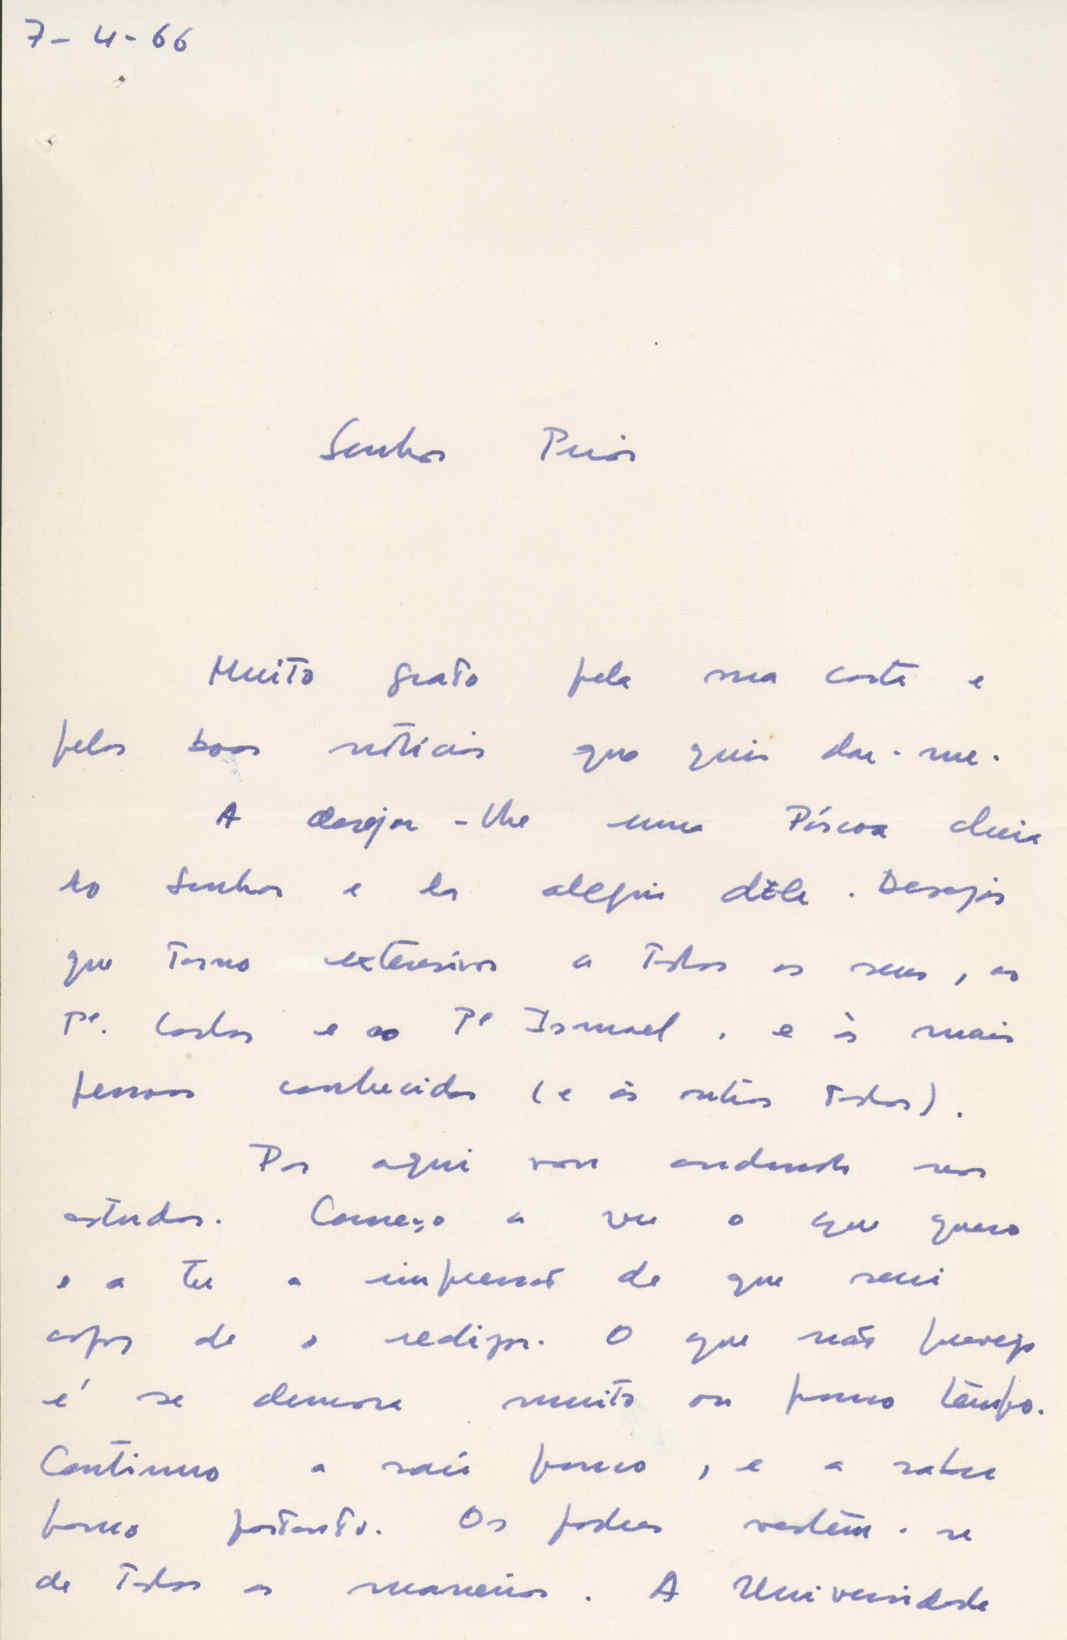 7-4-66
Senhor Prior
Muito grato pela sua carta e
pelas boas notícias que quis dar-me.
A desejar-lhe uma Páscoa cheia
do Senhor e da alegria dêle. Desejos
que torno extensivos a todos os seus, ao
Pe. Carlos e ao Pe Ismael, e às mais
pessoas conhecidas (e às outras todas).
Por aqui vou andando nos
estudos. Começo a ver o que quero
e a ter a impressão de que serei
capaz de o redigir. O que não prevejo
é se demora muito ou pouco tempo.
Continuo a sair pouco, e a saber
pouco portanto. Os padres vestem-se
de todas as maneiras. A Universidade